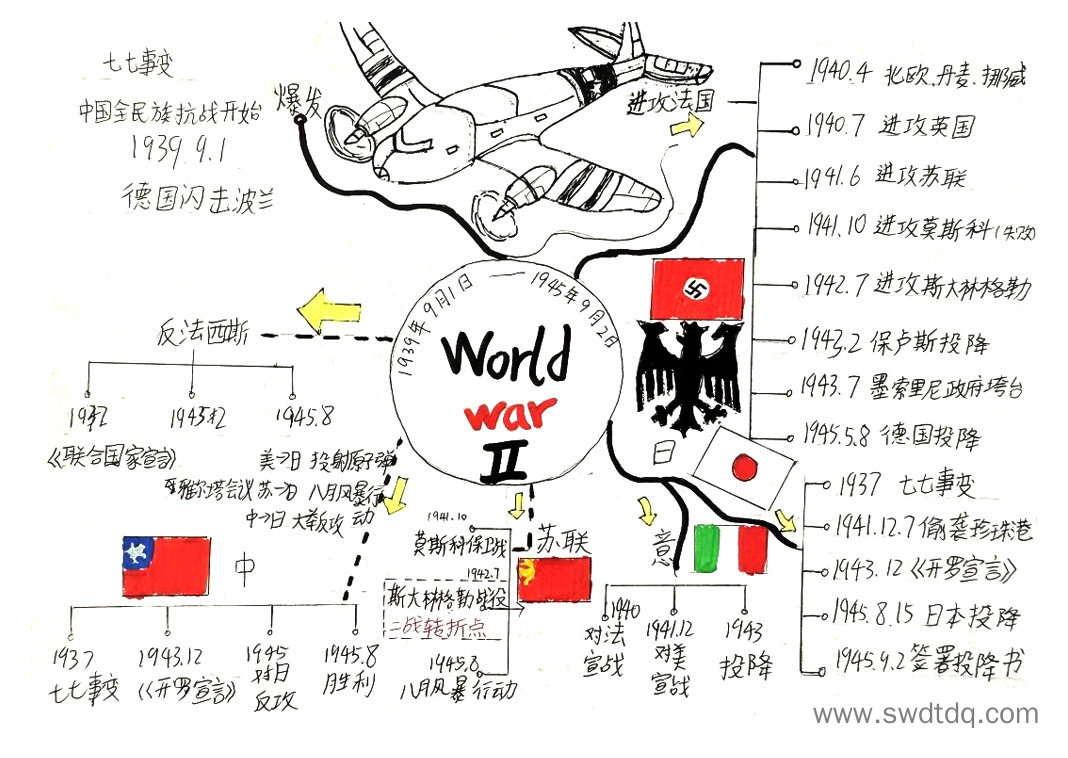 七七事变
中国全民族抗战开始
1939.9.1
德国闪击波兰
爆发
进攻法国
1940.4 北欧.丹麦.挪威
1940.7 进攻英国
1941.6 进攻苏联
1941.10 进攻莫斯科
1942.7 进攻斯大林格勒
1943.2 保卢斯投降
1943.7 墨索里尼政府垮台
1945.5.8 德国投降
1939年9月1日 — 1945年9月2日
World
war
II
反法西斯
1945.8
《联合国家宣言》
雅尔塔会议
美→日 投射原子弹
苏→日 八月风暴行动
中→日 大反攻
中
1937
七七事变
1943.12
《开罗宣言》
1945
对日
反攻
1945.8
胜利
苏联
1941.10
莫斯科保卫战
1942.7
斯大林格勒战役
二战转折点
1945.8
八月风暴行动
意
1940
对法
宣战
1941.12
对美
宣战
1943
投降
日
1937 七七事变
1941.12.7 偷袭珍珠港
1943.12《开罗宣言》
1945.8.15 日本投降
1945.9.2 签署投降书
www.swdtdq.com